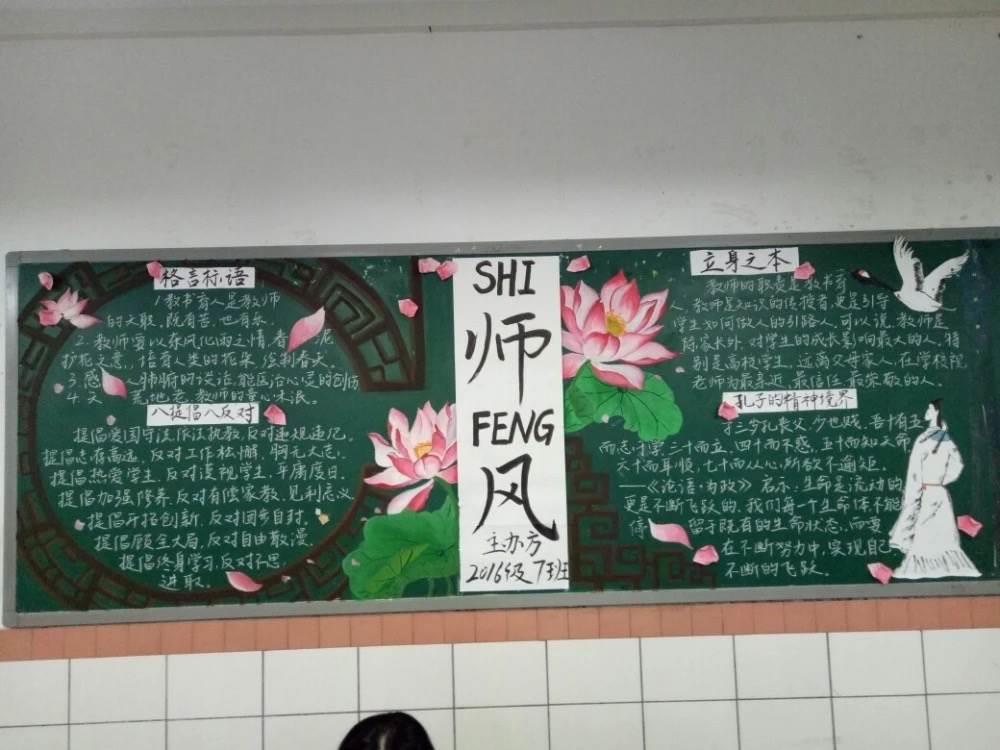 格言标语
1.教书育人是教师
的天职,既有苦,也有乐
2.教师要以东风化雨之情,春泥
护花之意,培育人类的花朵,绘制春天
3.感人肺腑的谈话,能医治心灵的创伤
4.天荒地老,教师的童心未泯。
八提倡八反对
提倡爱国守法,依法执教,反对违规违纪。
提倡志存高远,反对工作松懈,胸无大志。
提倡热爱学生,反对漠视学生,平庸度日。
提倡加强修养,反对有偿家教,见利忘义
提倡开拓创新,反对固步自封。
提倡顾全大局,反对自由散漫。
提倡终身学习,反对不思
进取。
SHI
师
FENG
风
主办方
2016级7班
立身之本
教师的职责是教书育
人,教师是知识的传授者,更是引导
学生如何做人的引路人,可以说,教师是
除家长外,对学生的成长影响最大的人,特
别是高校学生,远离父母家人,在学校视
老师为最亲近、最信任、最崇敬的人。
孔子的精神境界
三岁孔丧父,少也贱,吾十有五
而志于学,三十而立,四十而不惑,五十而知天命
六十而耳顺,七十而从心所欲不逾矩。
——《论语·为政》启示:生命是流动的
更是不断飞跃的,我们每一个生命体不能
停留于既有的生命状态,而要
在不断努力中,实现自己
不断的飞跃。